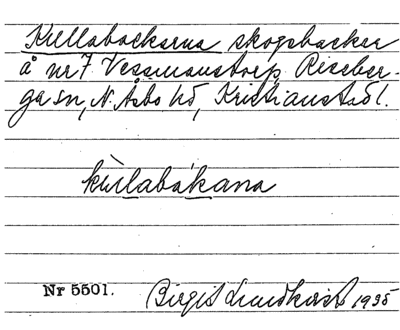 Kullabackarna skogsbackar
å nr 7 Vessmanstorp Riseber-
ga sn, N. Åsbo hd, Kristianst. l.
kùllabákana
Nr 5501.
Birgit Lundkvist 1935